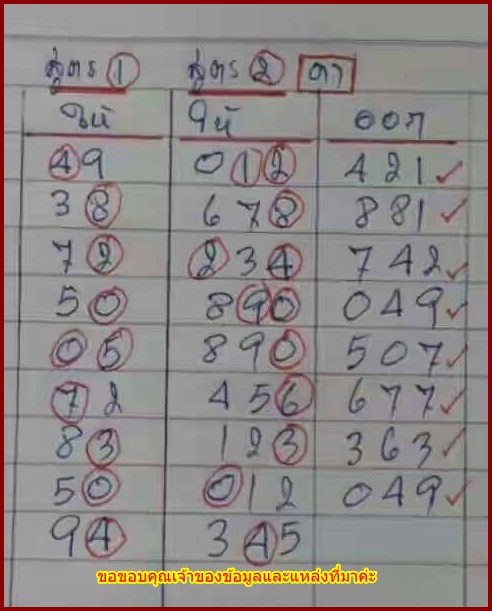 สูตร 1 สูตร 2 ดา
ให้ ให้ ออก
49 012 421 ✓
38 678 881 ✓
72 234 742 ✓
50 890 049 ✓
05 890 507 ✓
72 456 677 ✓
83 123 363 ✓
50 012 049 ✓
94 345
ขอขอบคุณเจ้าของข้อมูลและแหล่งที่มาค่ะ